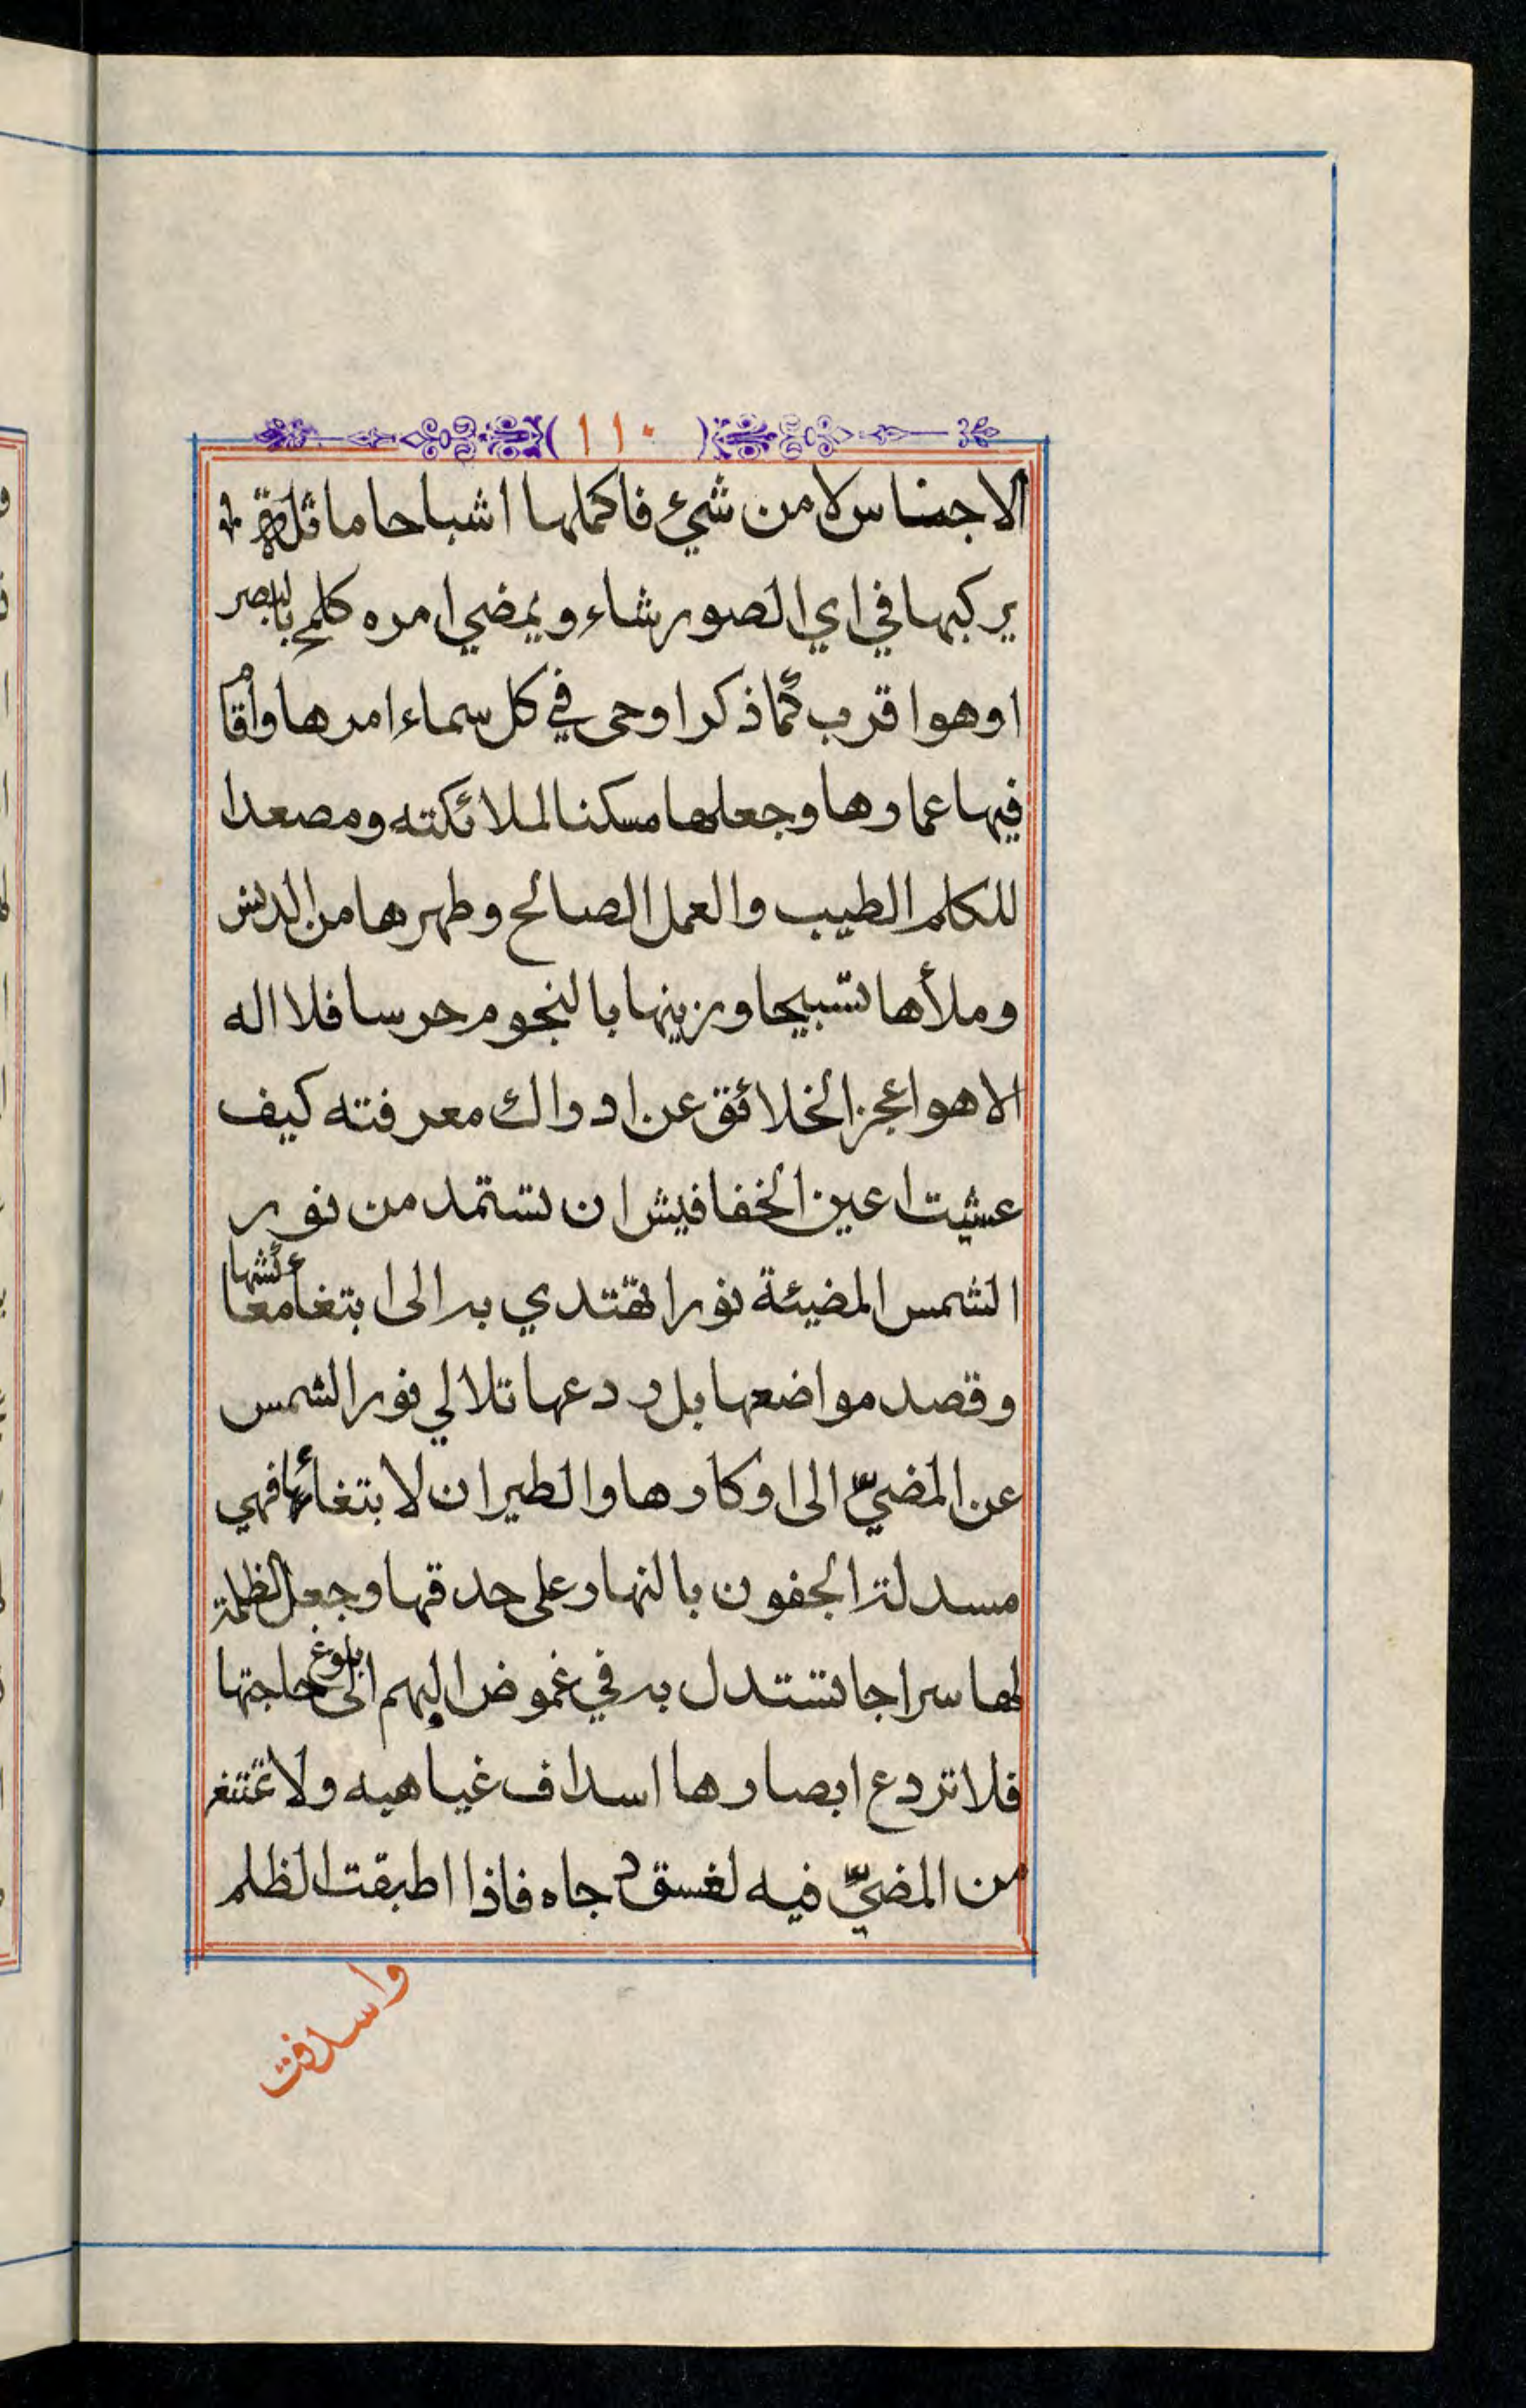 ١١٠
الاجناس لا من شيء فاكملها اشباحا ماثلة
يركبها في اي الصور شاء ويمضي امره كلمح بالبصر
اوهو اقرب كما ذكر اوحى في كل سماء امرها واقا
فيها عمارها وجعلها مسكنا لملائكته ومصعدا
للكلم الطيب والعمل الصالح وطهرها من الدنس
وملأها تسبيحا وزينها بالنجوم حرسا فلا اله
الا هو اعجز الخلائق عن ادراك معرفته كيف
عشيت اعين الخفافيش ان تستمد من نور
الشمس المضيئة نورا تهتدي به الى ابتغأ معائشها
وقصد مواضعها بل ردعها تلالي نور الشمس
عن المضيّ الى اوكارها والطيران لابتغائها فهي
مسدلة الجفون بالنهار على حدقها وجعل الظلمة
لها سراجا تستدل به في غموض البهم الى بلوغ حاجتها
فلا تردع ابصارها اسداف غياهبه ولا تمتنع
من المضيّ فيه لغسق دجاه فاذا اطبقت الظلم
واسدفت